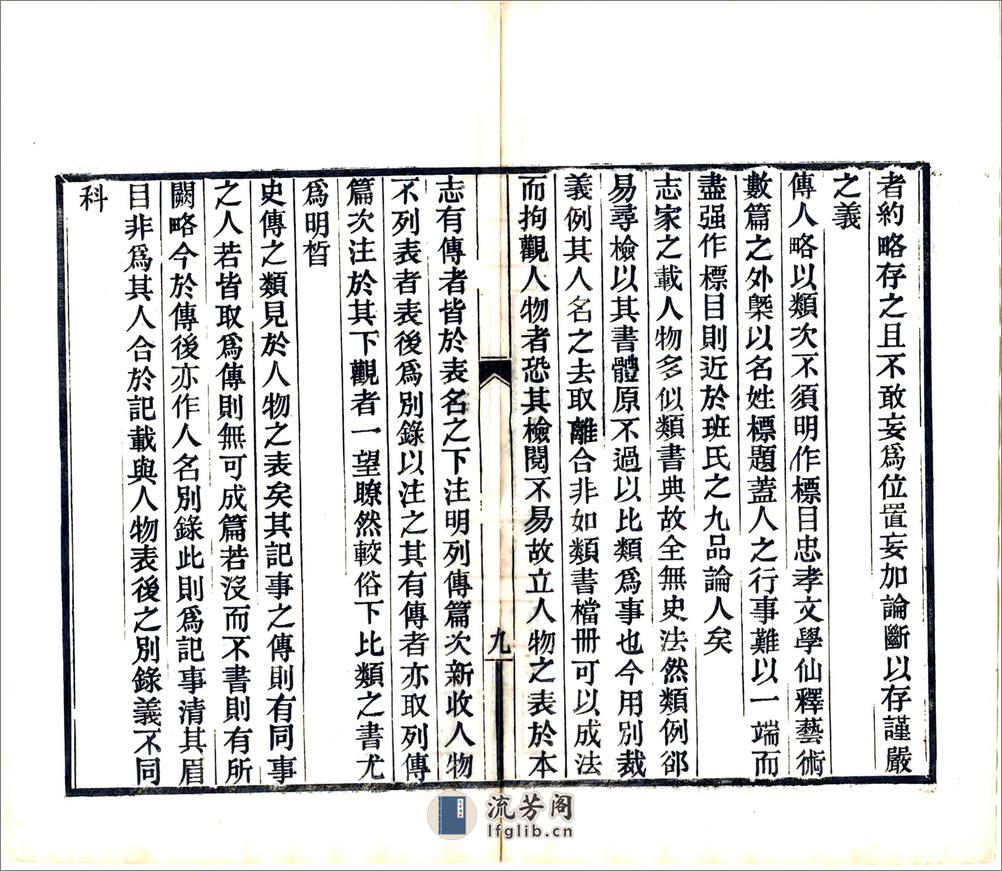 者約略存之且不敢妄爲位置妄加論斷以存謹嚴
之義
傳人略以類次不須明作標目忠孝文學仙釋藝術
數篇之外槩以名姓標題蓋人之行事難以一端而
盡强作標目則近於班氏之九品論人矣
志家之載人物多似類書典故全無史法然類例卻
易尋檢以其書體原不過以比類爲事也今用別裁
義例其人名之去取離合非如類書檔冊可以成法
而拘觀人物者恐其檢閱不易故立人物之表於本
九
志有傳者皆於表名之下注明列傳篇次新收人物
不列表者表後爲別錄以注之其有傳者亦取列傳
篇次注於其下觀者一望瞭然較俗下比類之書尤
爲明晳
史傳之類見於人物之表矣其記事之傳則有同事
之人若皆取爲傳則無可成篇若沒而不書則有所
闕略今於傳後亦作人名別錄此則爲記事清其眉
目非爲其人合於記載與人物表後之別錄義不同
科
流芳阁
lfglib.cn